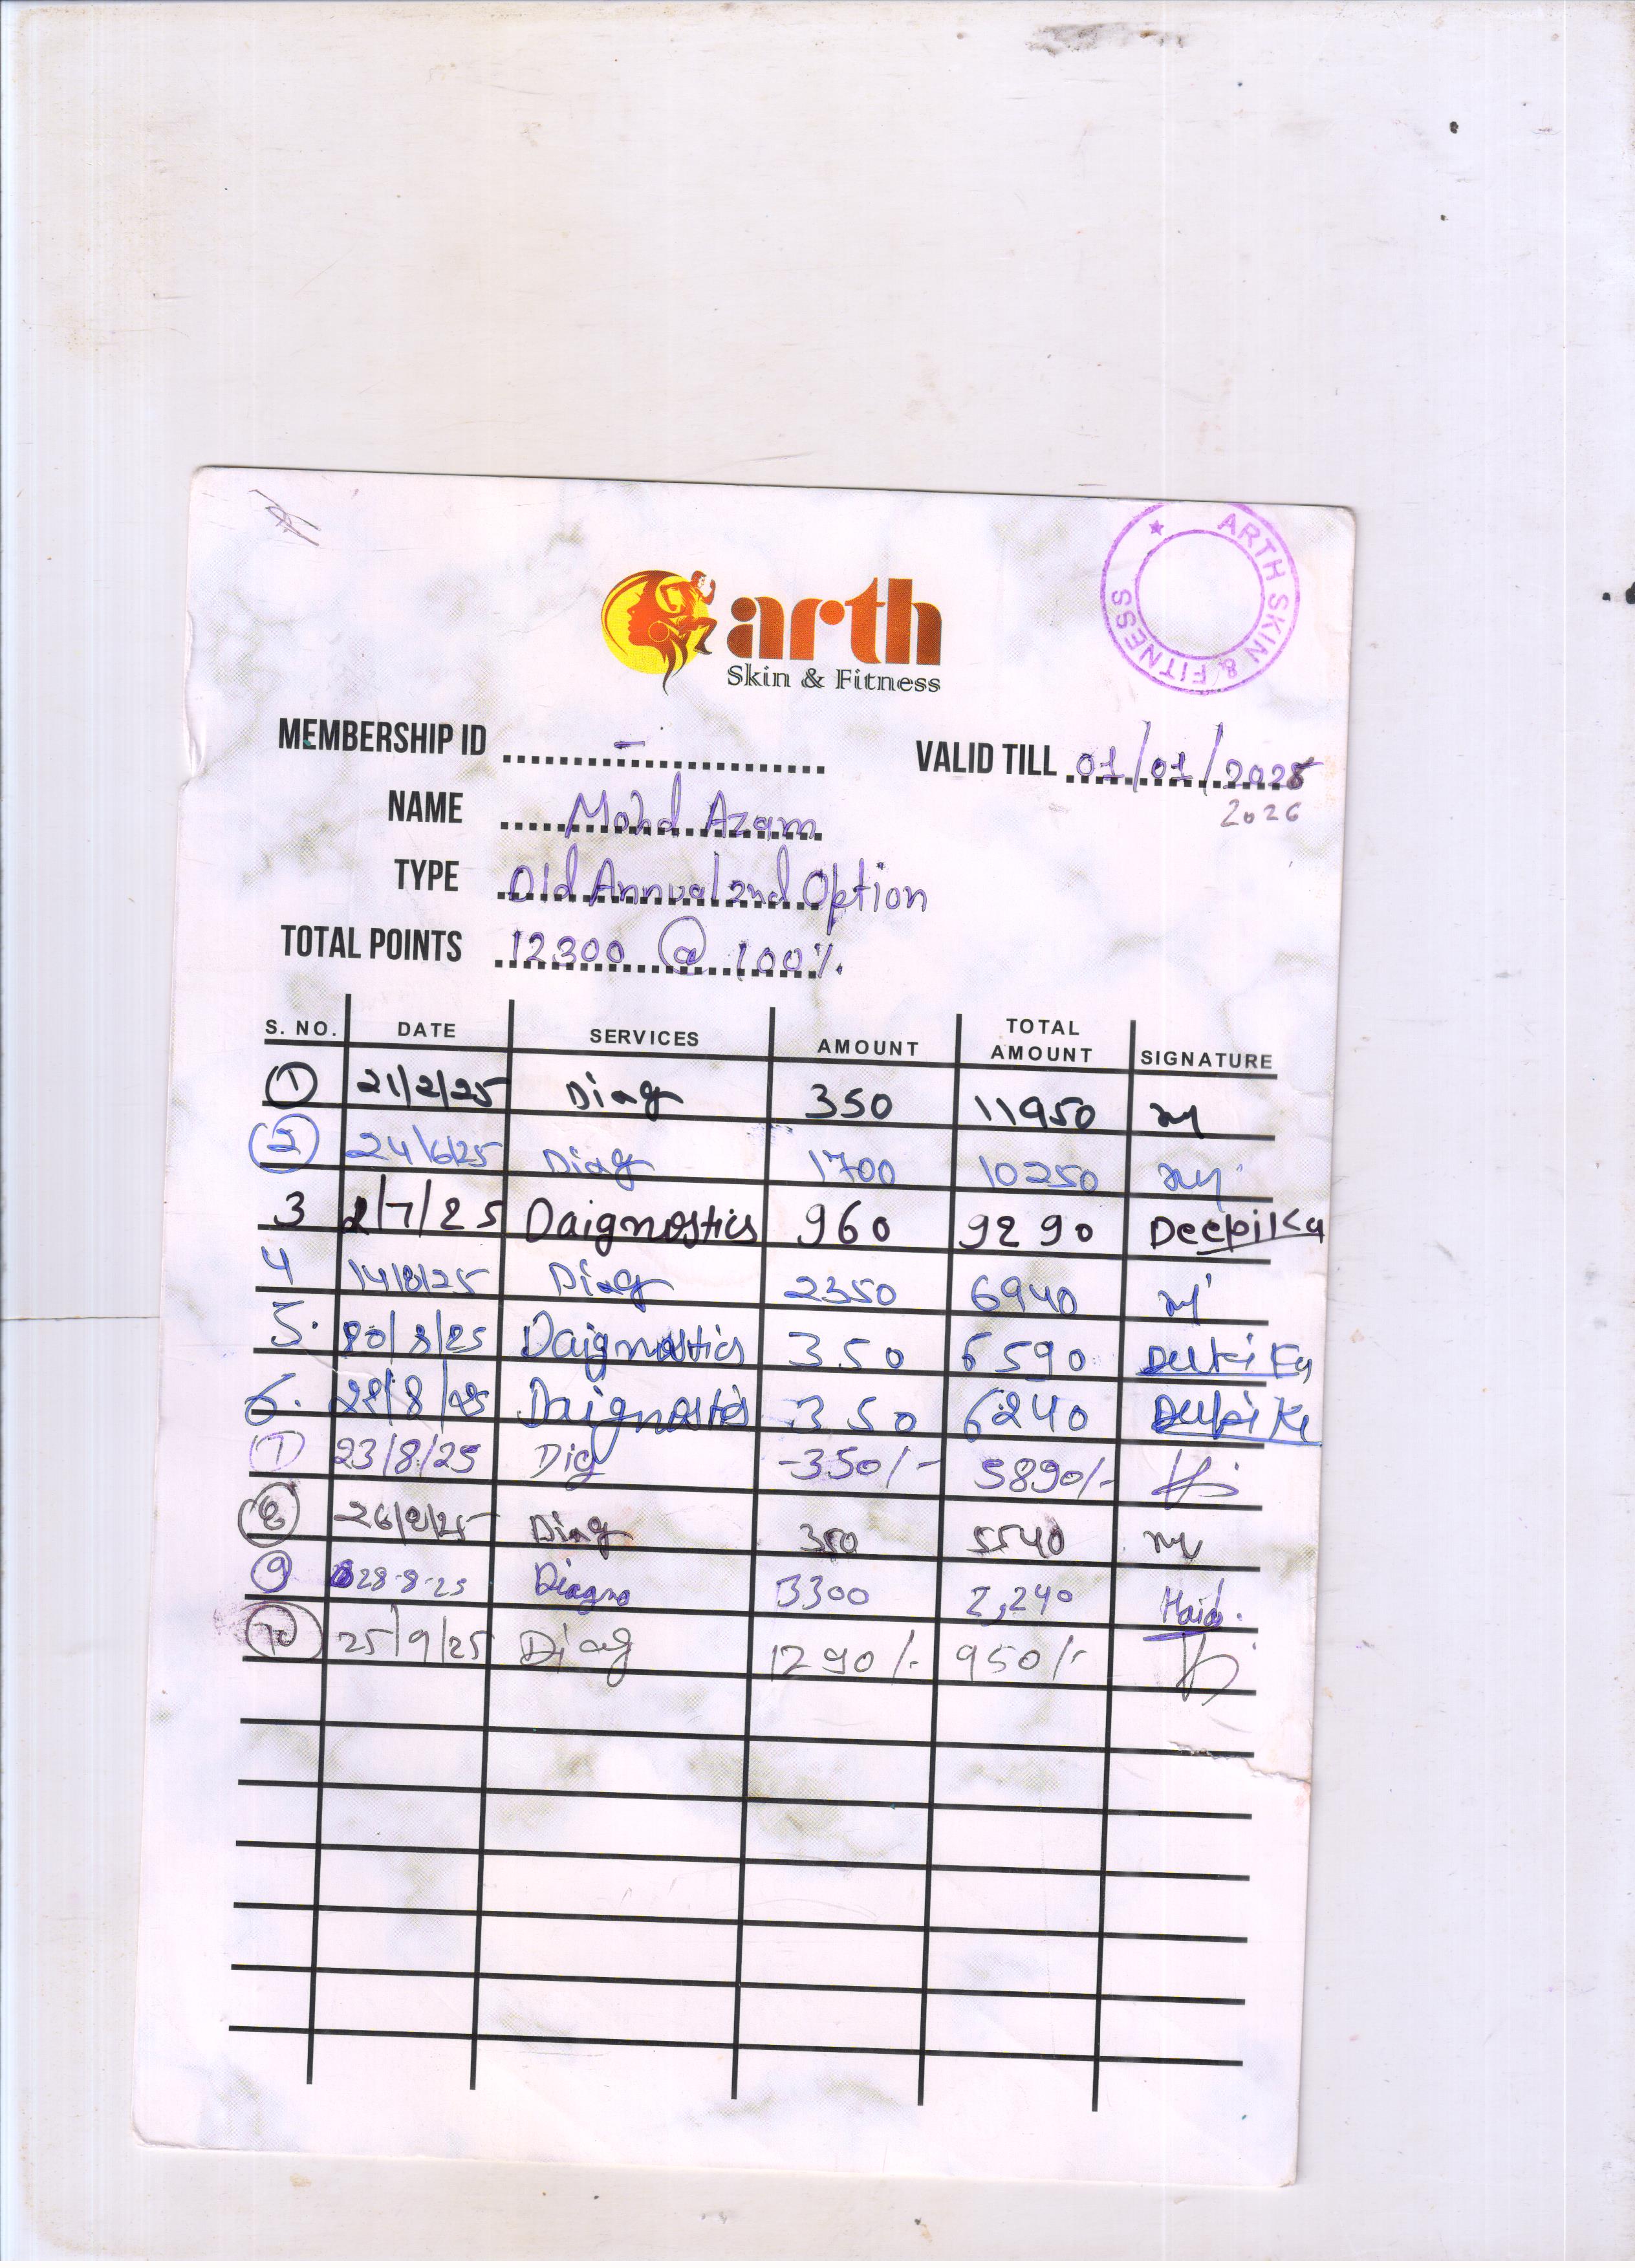 arth
Skin & Fitness
ARTH SKIN & FITNESS
MEMBERSHIP ID –
VALID TILL 01/01/2025
2026
NAME Mohd Azam
TYPE Old Annual 2nd Option
TOTAL POINTS 12300 @ 100%
S. NO. DATE SERVICES AMOUNT TOTAL AMOUNT SIGNATURE
1 21/2/25 Diag 350 11950
2 24/6/25 Diag 1700 10250
3 2/7/25 Daignostics 960 9290 Deepika
4 14/8/25 Diag 2350 6940
5. 20/8/25 Daignostics 350 6590
6. 22/8/25 Daignostics 350 6240
7 23/8/25 Dig -350/- 5890/-
8 26/8/25 Diag 350 5540
9 28-8-25 Diagno 3300 2,240
10 25/9/25 Diag 1290/- 950/-